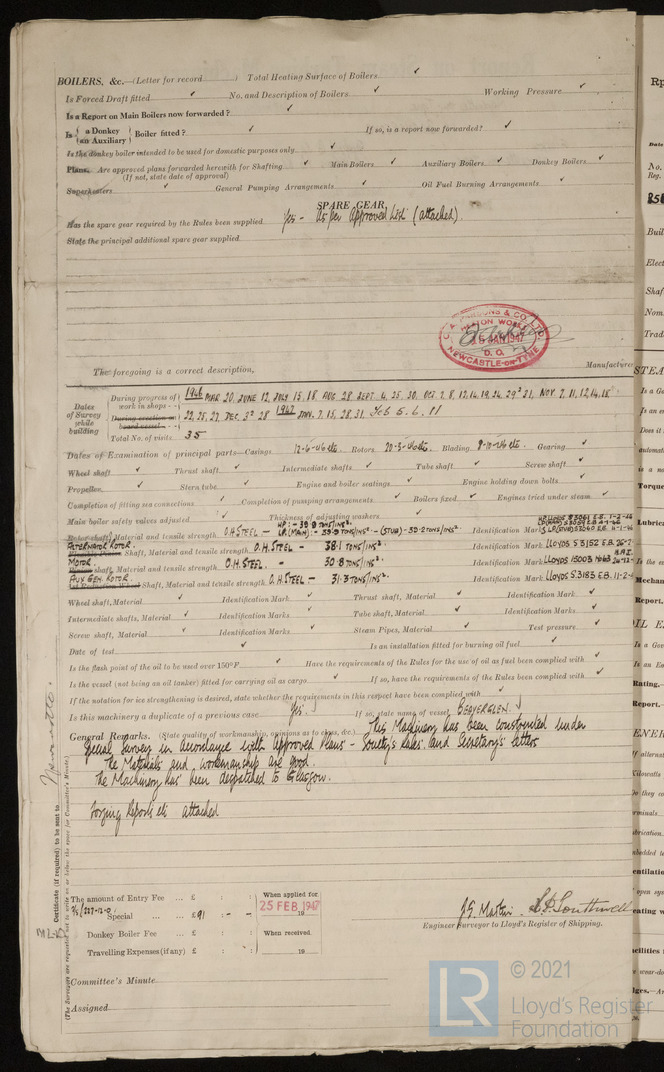 BOILERS, &c.—(Letter for record ) Total Heating Surface of Boilers ✓
Is Forced Draft fitted ✓ No. and Description of Boilers ✓ Working Pressure ✓
Is a Report on Main Boilers now forwarded? ✓
Is { a Donkey / an Auxiliary } Boiler fitted? ✓ If so, is a report now forwarded? ✓
Is the donkey boiler intended to be used for domestic purposes only
Plans. Are approved plans forwarded herewith for Shafting ✓ Main Boilers ✓ Auxiliary Boilers ✓ Donkey Boilers ✓
(If not, state date of approval)
Superheaters ✓ General Pumping Arrangements ✓ Oil Fuel Burning Arrangements ✓
SPARE GEAR.
Has the spare gear required by the Rules been supplied Yes - As per Approved List (attached).
State the principal additional spare gear supplied
C. A. PARSONS & CO. LTD
HEATON WORKS
15 JAN 1947
D. O.
NEWCASTLE-ON-TYNE
The foregoing is a correct description, Manufacturer
Dates of Survey while building
During progress of work in shops - - 1946 MAR 20, JUNE 12, JULY 15, 18, AUG 28, SEPT 4, 25, 30, OCT 7, 8, 12, 14, 19, 24, 29, 31, NOV 7, 11, 12, 14, 18
During erection on board vessel - - - 22, 25, 27, DEC 3, 28 1947 JAN. 7, 15, 28, 31, Feb 5, 6, 11
Total No. of visits 35
Dates of Examination of principal parts—Casings 12-6-46 etc. Rotors 20-3-46 etc. Blading 9-10-46 etc. Gearing ✓
Wheel shaft ✓ Thrust shaft ✓ Intermediate shafts ✓ Tube shaft ✓ Screw shaft ✓
Propeller ✓ Stern tube ✓ Engine and boiler seatings ✓ Engine holding down bolts ✓
Completion of fitting sea connections ✓ Completion of pumping arrangements ✓ Boilers fixed ✓ Engines tried under steam ✓
Main boiler safety valves adjusted ✓ Thickness of adjusting washers ✓
Rotor shaft, Material and tensile strength O.H. STEEL - HP:- 39.8 TONS/INS². LP (MAIN):- 33.3 TONS/INS² - (STUB) - 30.2 TONS/INS². Identification Mark
ALTERNATOR ROTOR. Shaft, Material and tensile strength O.H. STEEL - 38.1 TONS/INS². Identification Mark LLOYDS S3152 E.B. 26-7-
MOTOR. shaft, Material and tensile strength O.H. STEEL. - 30.8 TONS/INS². Identification Mark LLOYDS
AUX GEN ROTOR. Shaft, Material and tensile strength O.H. STEEL - 31.3 TONS/INS². Identification Mark LLOYDS S.3183 E.B. 11-2-4
Wheel shaft, Material ✓ Identification Mark ✓ Thrust shaft, Material ✓ Identification Mark ✓
Intermediate shafts, Material ✓ Identification Marks ✓ Tube shaft, Material ✓ Identification Marks ✓
Screw shaft, Material ✓ Identification Marks ✓ Steam Pipes, Material ✓ Test pressure ✓
Date of test ✓ Is an installation fitted for burning oil fuel ✓
Is the flash point of the oil to be used over 150°F. ✓ Have the requirements of the Rules for the use of oil as fuel been complied with ✓
Is the vessel (not being an oil tanker) fitted for carrying oil as cargo ✓ If so, have the requirements of the Rules been complied with ✓
If the notation for ice strengthening is desired, state whether the requirements in this respect have been complied with ✓
Is this machinery a duplicate of a previous case Yes. If so, state name of vessel BEAVERGLEN.
General Remarks. (State quality of workmanship, opinions as to class, &c.) This Machinery has been constructed under
Special Survey in accordance with Approved Plans - Society's Rules and Secretary's letters
The Materials and workmanship are good.
The Machinery has been despatched to Glasgow.
Forging Reports etc attached
Certificate (if required) to be sent to Newcastle.
(The Surveyors are requested not to write on or below the space for Committee's Minute.)
The amount of Entry Fee ... £ : :
Special ... ... £91 : - : -
Donkey Boiler Fee ... £ : :
Travelling Expenses (if any) £ : :
When applied for
25 FEB 1947
19
When received.
19
J.S. Martin. Southwell
Engineer Surveyor to Lloyd's Register of Shipping.
Committee's Minute
Assigned
LR © 2021
Lloyd's Register
Foundation